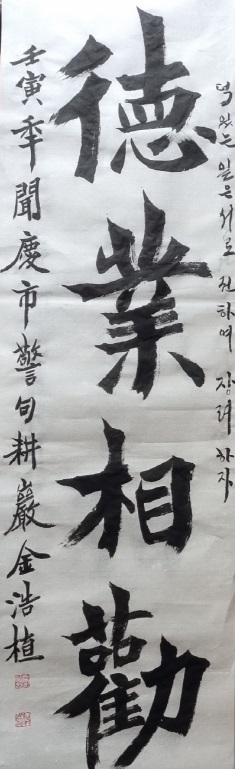 덕있는 일은 서로 권하며 장려하자
德業相勸
壬寅年聞慶市警句耕巖金浩植